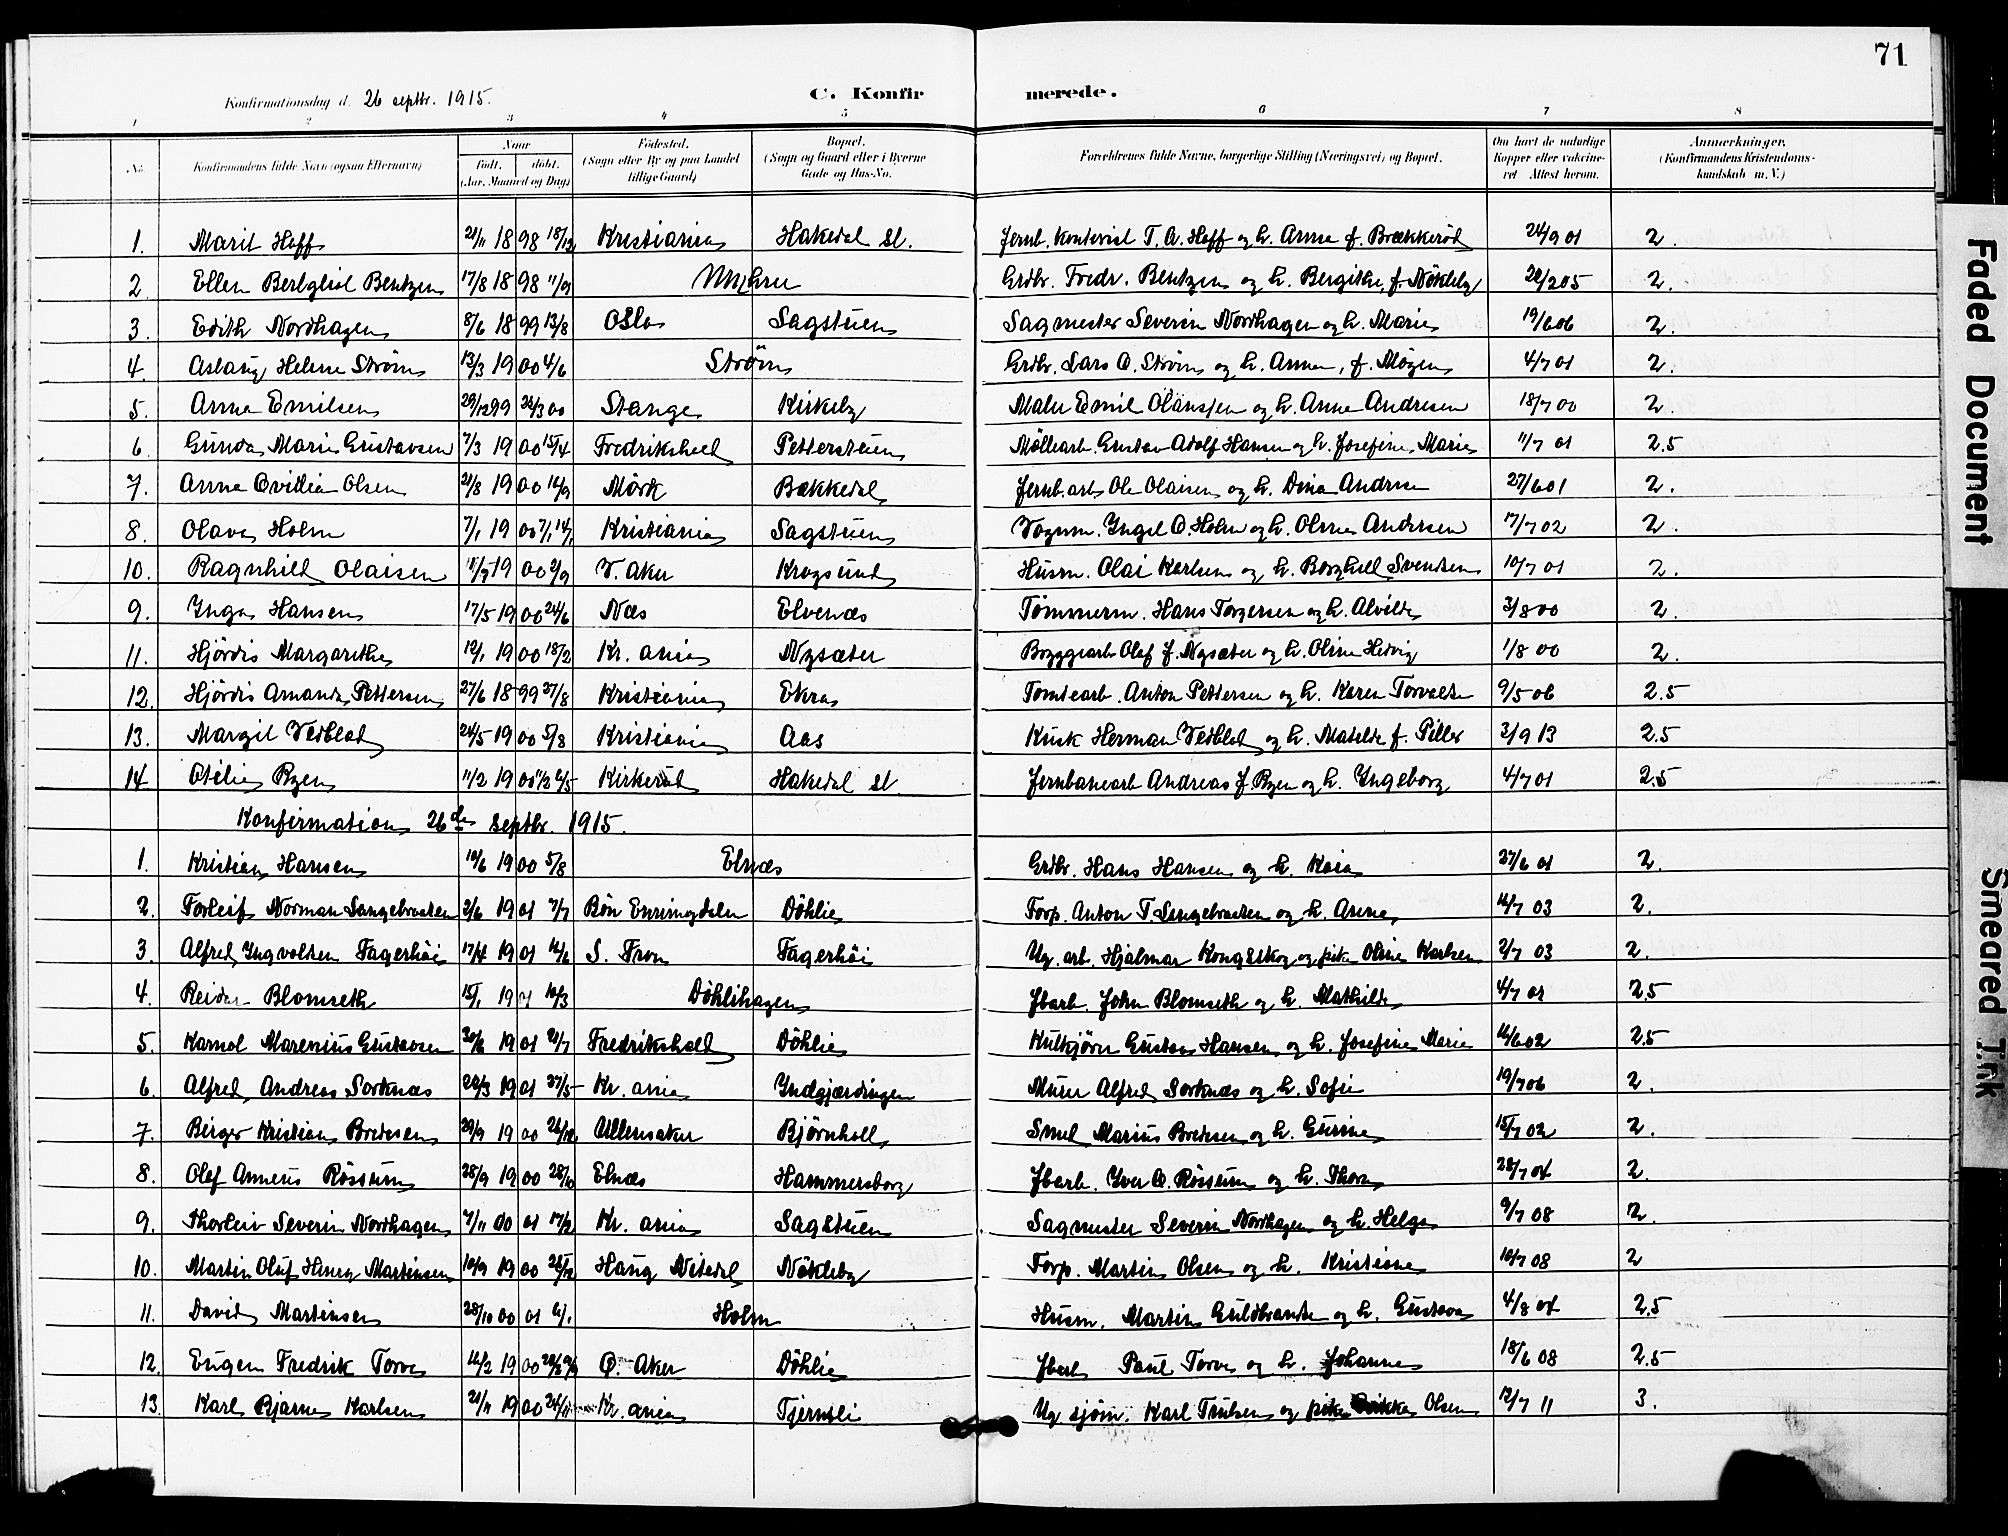 71
Konfirmationsdag d. 26 septbr. 1915.
C. Konfirmerede.
1 2 3 4 5 6 7 8
No. Konfirmandens fulde Navn (ogsaa Efternavn) Naar født, døbt. (Aar, Maaned og Dag) Fødested. (Sogn eller By og paa Landet tillige Gaard) Bopæl. (Sogn og Gaard eller i Byerne Gade og Hus-No. Forældrenes fulde Navne, borgerlige Stilling (Næringsvei) og Bopæl. Om havt de naturlige Kopper eller vakcineret Attest herom. Anmærkninger. (Konfirmandens Kristendomskundskab m. V.)
1. Marit Hoff 21/11 1898 18/12 Kristiania Hakedal st. Jernb. Kontorist T. A. Hoff og h. Anna f. Brækkerød 24/9 01 2.
2 Ellen Bergliot Bentzen 17/8 1898 11/9 Grdbr. Fredr. Bentzen og h. Bergithe, f. Nökleby 2.
3. Edith Nordhagen 8/6 1899 13/8 Oslo Sagstuen Sagmester Severin Nordhagen og h. Marie 19/6 06 2.
4. Aslaug Helene Strøm 13/3 1900 4/6 Strøm Grdbr. Lars O. Strøm og h. Anna, f. Møyen 4/7 01 2.
5. Anna Emilsen 29/12 99 Stange Kirkeby Maler Emil Olansen og h. Anne Andresen 18/7 00 2.
6 Gunda Marie Gustavsen 7/3 1900 15/4 Fredrikshald Petterstuen Møllearb. Gustav Adolf Hansen og h. Josefine Marie 11/7 01 2.5
7. Anna Ovidia Olsen 21/8 1900 16/9 Mørk Bækkedal Jernb.arb. Ole Olaisen og h. Dina Andrea 27/6 01 2.
8. Olava Holm 7/1 1900 Kristiania Sagstuen Vognm. Yngel O. Holm og h. Olava Andersen 17/7 02 2.
10. Ragnhild Olaisen 1900 2/9 V. Aker Krogsund Husm. Olai Karlsen og h. Borghild Svendsen 10/7 01 2.
9. Ynga Hansen 17/5 1900 24/6 Næs Elvenæs Tømmerm. Hans Torgersen og h. Alvilde 3/8 00 2.
11. Hjördis Margarethe 1900 18/2 Kr.ania Nysæter Byggearb Olaf J. Nysæter og h. Oline Hedvig 1/8 00 2.
12. Hjördis Amanda Pettersen 27/6 1899 27/8 Kristiania Ekra Tomtearb. Anton Pettersen og h. Karen 9/5 06 2.5
13. Margit Vedblad 24/5 1900 5/8 Kristiania Aas Kusk Herman Vedblad og h. Matilde f. Piller 3/9 13 2.5
14 Otilie Ryen 11/2 1900 Kirkerud Hakedal st. Jernbanearb Andreas J. Ryen og h. Yngeborg 4/7 01 2.5
Konfirmation 26de septbr. 1915.
1. Kristian Hansen 10/6 1900 5/8 Elnæs Grdbr. Hans Hansen og h. Kaia 27/6 01 2.
2. Torleif Norman Langebraaten 2/6 1901 7/7 Döhlie Forp. Anton T. Langebraaten og h. Anna 14/7 03 2.
3 Alfred Yngvoldsen Fagerhöi 17/4 1901 16/6 S. Fron Fagerhöi Ug. arb. Hjalmar Kongskog og pike Oline Karlsen 2/7 03 2.
4. Reidar Blomseth 15/1 10/3 Döhlihagen Jbarb. John Blomseth og h. Mathilde 2.5
5. Karnol Marenius Gustavsen 1901 21/7 Fredrikshald Döhlie Kulkjörer Gustav Hansen og h. Josefine Marie 14/6 02 2.5
6. Alfred Andreas Sorknæs 1901 27/5 Kr. ania Yndgjærdingen Murer Alfred Sorknæs og h. Sofie 19/7 06 2.
7. Birger Kristian Bredesen 29/9 1900 26/12 Ullensaker Bjørnholl Smed Marius Bredesen og h. Gurine 15/7 02 2.
8. Olaf Anneus Røssum 28/9 1900 28/10 Elnæs Hammersborg Jbarb. Yver O. Røssum og h. Thora 2.
9. Thorleiv Severin Nordhagen 7/11 00 01 17/2 Kr. ania Sagstuen Sagmester Severin Nordhagen og h. Helga 9/7 08 2.
10. Martin Oluf Henry Martinsen 10/9 1900 Haug Nitedal Nökleby Forp. Martin Olsen og h. Kristiane 10/7 08 2
11. David Martinsen 28/10 00 01 6/1 Holm Husm. Martin Guldbrandsen og h. Gustava 2.5
12. Eugen Fredrik Torve 1900 Ö. Aker Döhlie Jbarb Paul Torve og h. Johanne 18/6 08 2.5
13. Karl Bjarne Karlsen 21/11 1900 Kr. ania Tjernsli Ug sjøm. Karl Trulsen og pike Olsen 12/7 11 3.
Faded Document
Smeared Ink